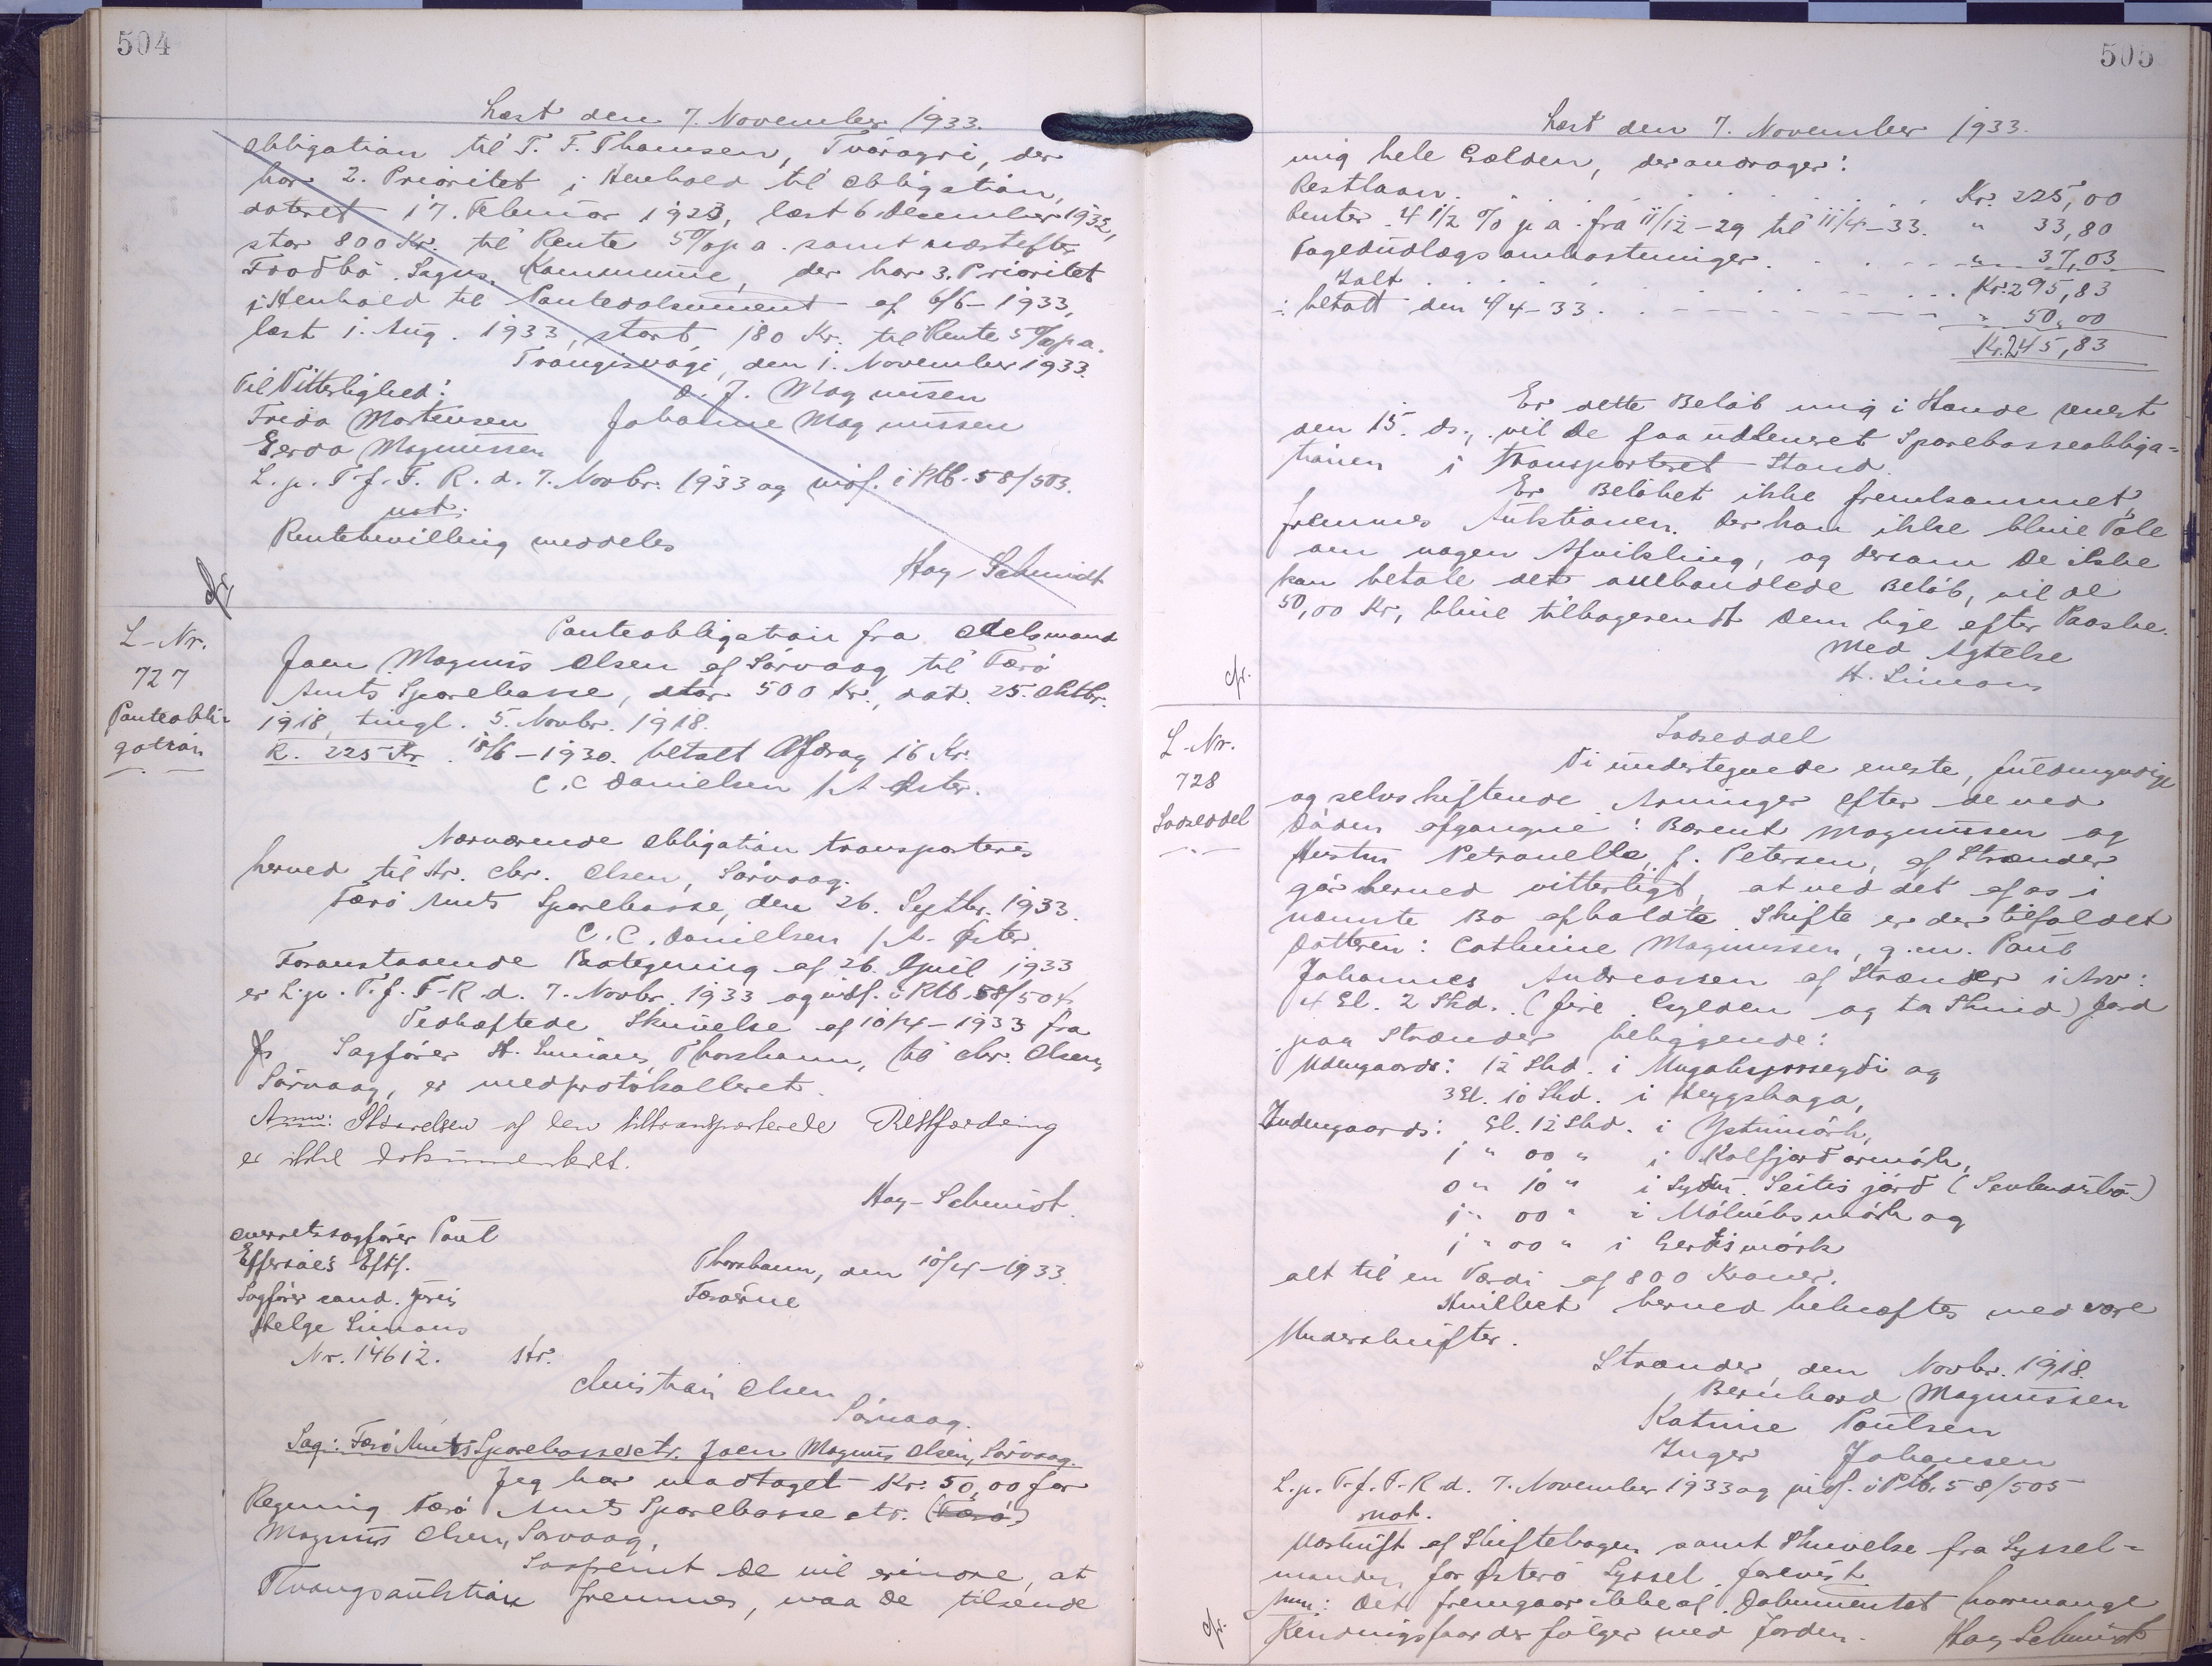 504
Læst den 7. November 1933.
Obligation til T. F. Thomsen, Tvöragri, der
har 2. Prioritet i Henhold til Obligation,
dateret 17. Februar 1923, læst 6 December 1932,
stor 800 Kr. til Rente 5% p a. samt næstefter
Frodbö Sogns Kommune, der har 3. Prioritet
i Henhold til Pantedokument af 6/6-1933,
læst 1. Aug. 1933, stort 180 Kr. til Rente 5% p a.
Trangisvági, den 1. November 1933.
Til Vitterlighed:
D. J. Magnussen
Frida Mortensen Johanne Magnussen
Gerda Magnussen
L. p. T. f. F. R. d. 7. Novbr. 1933 og indf. i Ptb. 58/503.
not.
Rentebevilling meddeles
Hoy-Schmidt
Cfr.
L-Nr.
727
Panteobli-
gation
Panteobligation fra Odelsmand
Joen Magnus Olsen af Sörvaag til Færö
Amts Sparekasse, stor 500 Kr., dat. 25. Oktbr.
1918, tingl. 5. Novbr. 1918.
R. 225 Kr. 18/6-1930. betalt Afdrag 16 Kr.
C. C Danielsen /A Öster.
Nærværende Obligation transporteres
herved til Hr. Chr. Olsen, Sörvaag.
Færö Amts Sparekasse, den 26. Septbr. 1933.
C. C. Danielsen /A. Öster
Foranstaaende Paategning af 26. April 1933
er L. p. T. f. F-R d. 7. Novbr. 1933 og indf. i Ptb. 58/504.
Vedhæftede Skrivelse af 10/4-1933 fra
Sagförer H. Simans, Thorshavn, til Chr. Olsen,
Sörvaag, er medprotokolleret.
Anm: Størrelsen af den tiltransporterede Restfordring
er ikke dokumenteret.
Hoy-Schmidt.
Overretssagförer Poul
Effersöe's Eftf.
Sagförer cand. juris
Helge Simans
Nr. 14612. Hr.
Thorshavn, den 10/4-1933.
Færöerne
Christian Olsen
Sörvaag.
Sag: Færö Amts Sparekasse ctr. Joen Magnus Olsen, Sörvaag.
Jeg har modtaget Kr. 50,00 for
Regning Færö Amts Sparekasse ctr. (Færö)
Magnus Olsen, Sörvaag,
Saafremt De vil erindre, at
Tvangsauktion fremmes, maa De tilsende
505
Læst den 7. November 1933.
mig hele Gælden, der andrager:
Restlaan . . . Kr. 225,00
Renter 4 1/2 % p a. fra 11/12-29 til 11/4-33. " 33,80
Fogedudlægsomkostninger . . . " 37,03
Ialt . . . Kr. 295,83
÷ betalt den 4/4-33 . . . " 50,00
Kr. 245,83
Er dette Belöb mig i Hænde senest
den 15. ds., vil De faa udleveret Sparekasseobliga-
tionen i transporteret Stand.
Er Belöbet ikke fremkommet,
fremmes Auktionen. Der kan ikke blive Tale
om nogen Afvikling, og dersom De ikke
kan betale det omhandlede Belöb, vil de
50,00 Kr, blive tilbagesendt Dem lige efter Paaske.
Med Agtelse
H. Simans
Cfr.
L-Nr.
728
Lodseddel
Lodseddel
Vi undertegnede eneste, fuldmyndige
og selvskiftende Arvinger efter de ved
Döden afgangne: Berent Magnussen og
Hustru Petronella, f. Petersen, af Strænder
gör herved vitterligt, at ved det af os i
nævnte Bo afholdte Skifte er der tilfaldet
Datteren: Cathrine Magnussen, g. m. Poul
Johannes Andreassen af Strænder i Arv:
4 Gl. 2 Skd. (fire Gylden og to Skind) Jord
paa Strænder beliggende:
Udengaards: 12 Skd. i og
3 Gl. 10 Skd. i Heygshaga,
Indengaards: Gl. 12 Skd. i
1 " 00 " i Kolfjordarmörk,
0 " 10 " i Seitis jörd
1 " 00 " i og
1 " 00 " i Gertismörk
alt til en Værdi af 800 Kroner.
Hvilket herved bekræftes med vore
Underskrifter.
Strænder, den Novbr. 1918.
Bernhard Magnussen
Katrine Poulsen
Inger Johansen
L. p. T. f. F-R d. 7. November 1933 og indf. i Ptb. 58/505
not.
Udskrift af Skiftebogen samt Skrivelse fra Syssel-
manden for Österö Syssel forevist.
Anm: Det fremgaar ikke af Dokumentet hvormange
Kendingsfaar der fölger med Jorden. Hoy-Schmidt
Cfr.